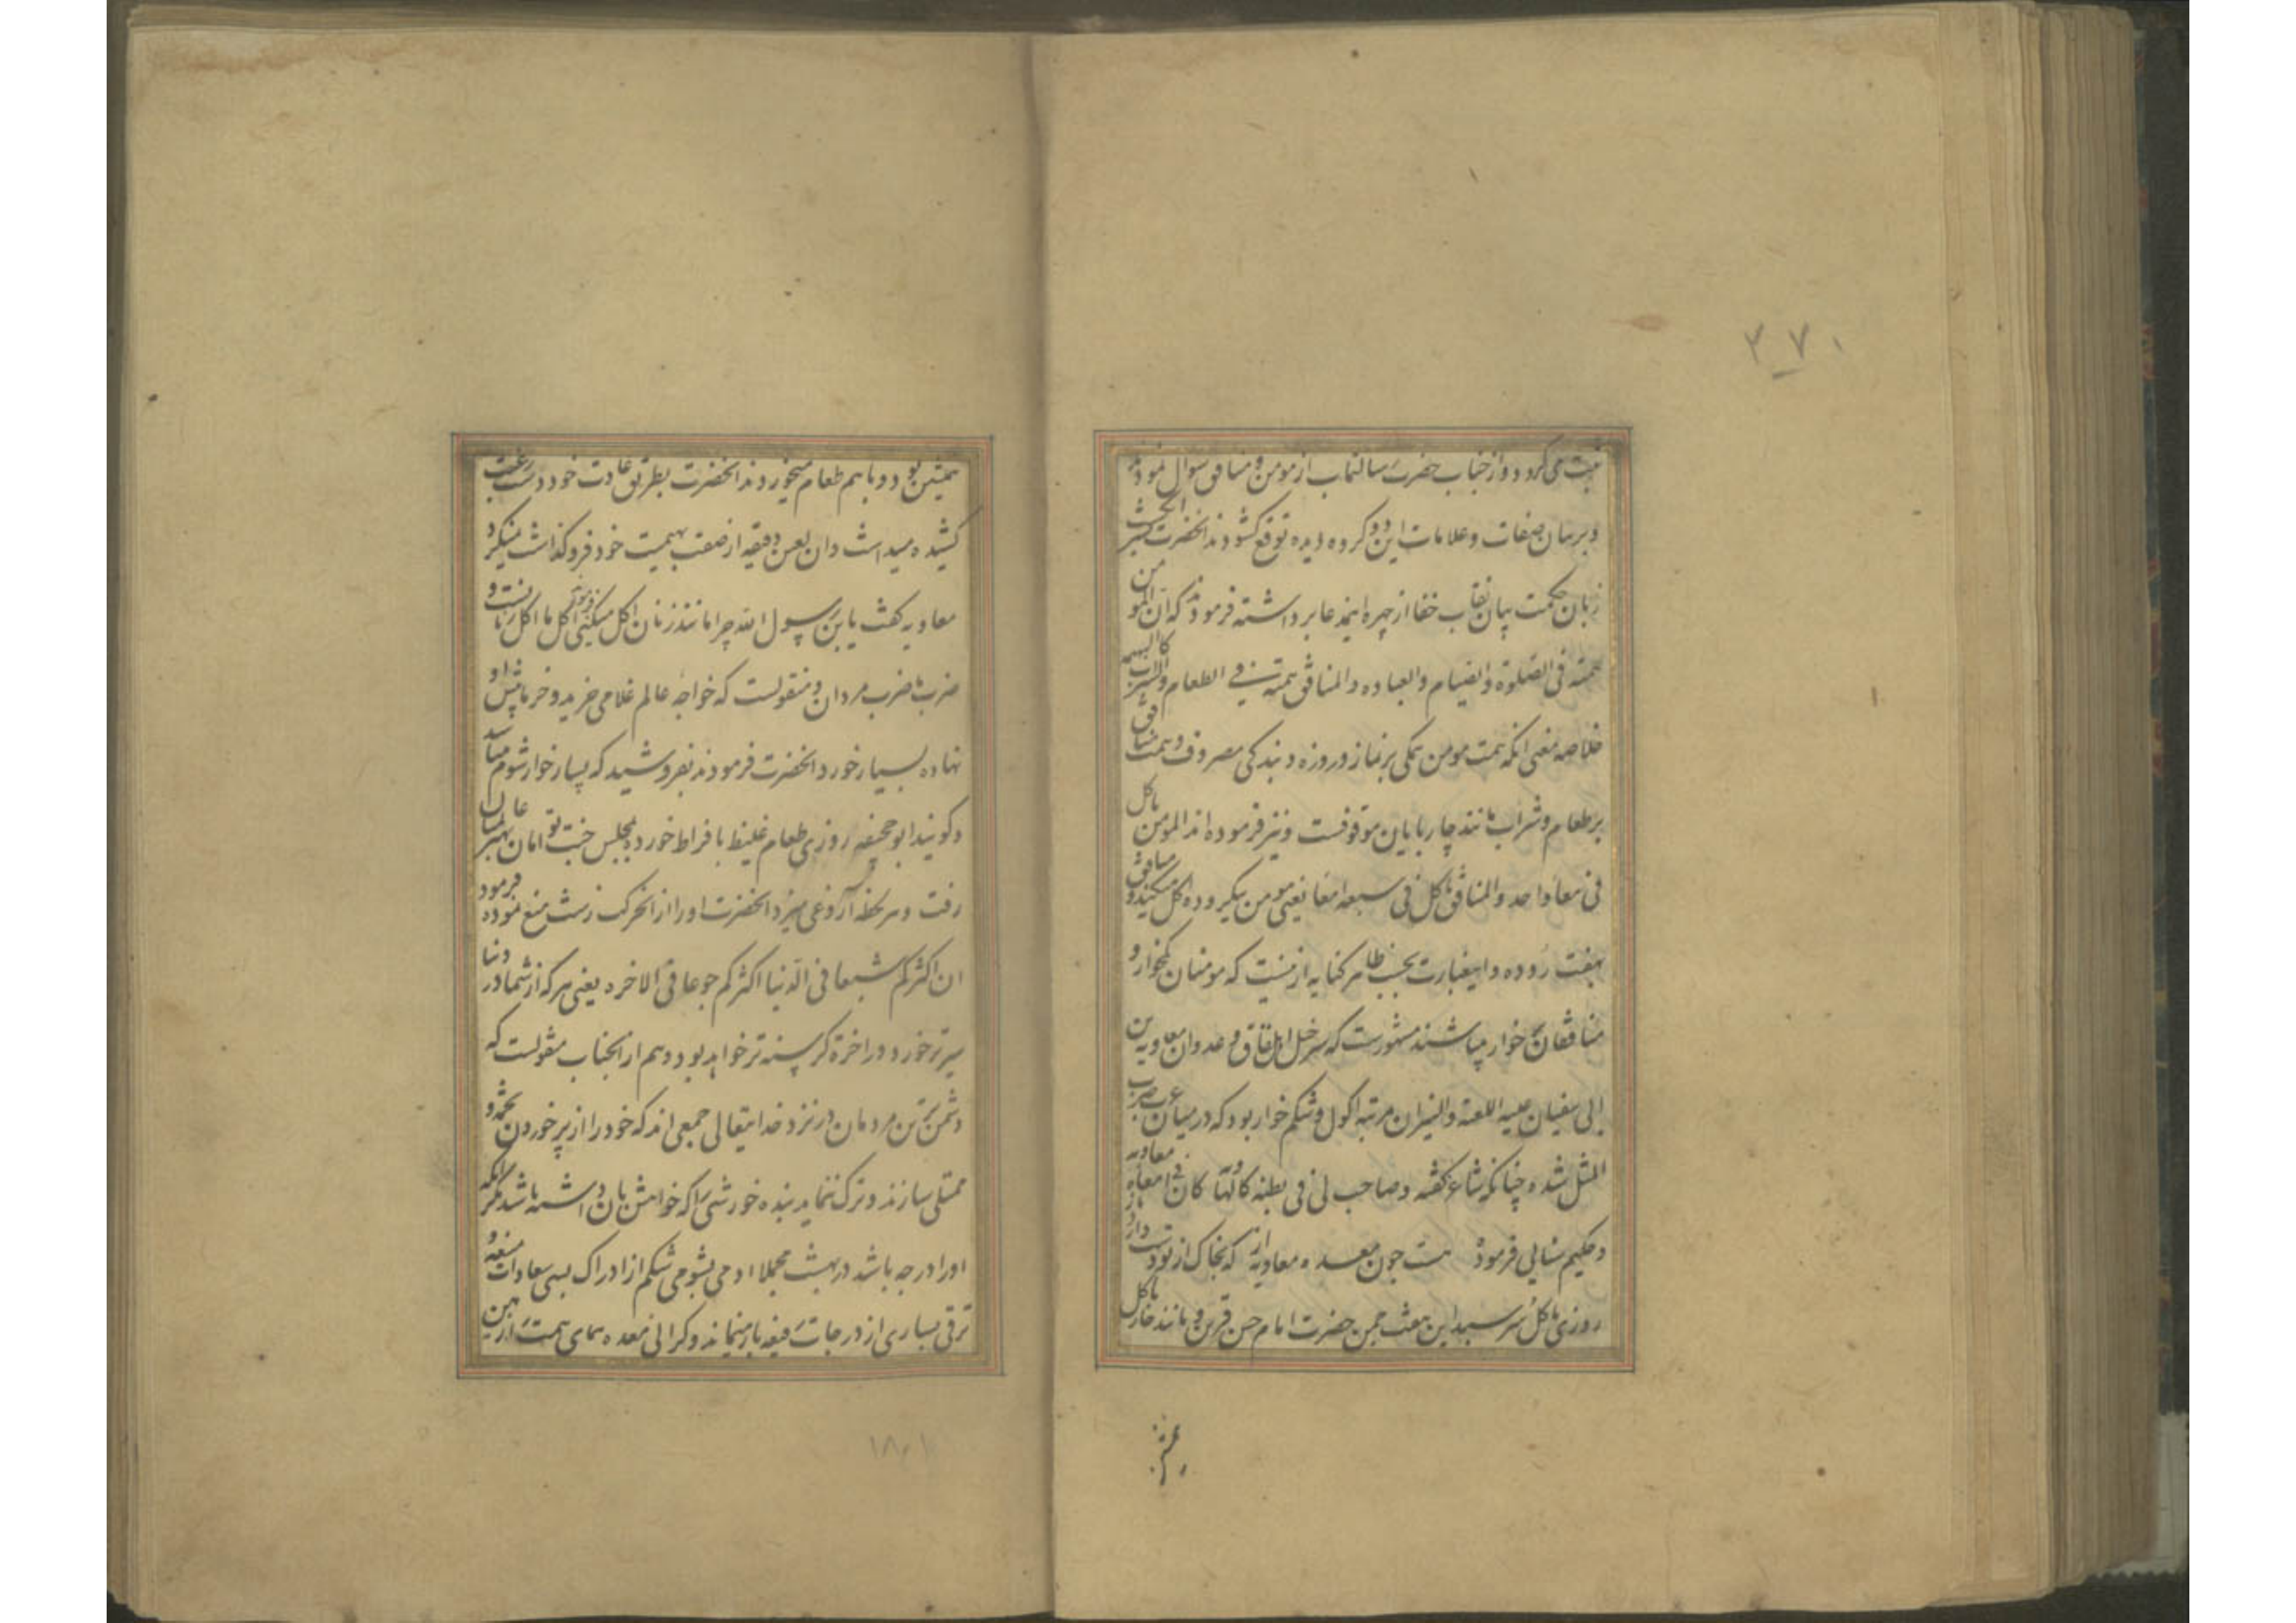 ۳۷۰
می کرد و از جناب حضرت رسالتماب از مومن و منافق سوال نمودند
و بر بیان صفات و علامات این دو گروه دیده توقع کشودند انحضرت
زبان حکمت بیان نقاب خفا از چهره اینمدعا برداشته فرمودند که ان المومن
همته فی الصلوة و الصیام و العباده و المنافق همته فی الطعام و الشراب کالبهیمه
خلاصه معنی انکه همت مومن همکی بر نماز و روزه و بندکی مصروف و همت منافق
بر طعام و شراب مانند چارپایان موقوفست و نیز فرموده اند المومن یاکل
فی معا واحد و المنافق یاکل فی سبعه امعا یعنی مومن بیکروده اکل میکند و منافق
بهفت روده و اینعبارت بحسب ظاهر کنایه از اینست که مومنان کمخوار و
منافقان پر خوار میباشند مشهورست که سرخیل اهل نفاق و عدوان معاویه بن
ابی سفیان علیه اللعنة و النیران مرتبه اکول و شکم خوار بود که در میان عرب ضرب
المثل شده چنانکه شاعر گفته و صاحب لی فی بطنه کالهاویه کان فی امعاه معاویه
و حکیم سنایی فرموده بیت چون معده معاویه از که بخاک از تو دست باز دارد
روزی باکل سر سبد این بعثت چمن حضرت امام حسن قرین و مانند خار با کل
همنشین بود و با هم طعام میخوردند انحضرت بطریق عادت خود دست رغبت
کشیده میداشت و ان لعین دقیقه از صفت بهیمیت خود فرو گذاشت نمیکرد
معاویه کفت یا بن رسول الله چرا مانند زنان اکل میکنی فرمود اکل ما اکل زنانست و
ضرب ما ضرب مردان و منقولست که خواجه عالم غلامی خرید و خرما پیش او
نهاده بسیار خورد انحضرت فرمودند بفروشید که بسیار خوار شوم میباشد
و کویند ابو جحیفه روزی طعام غلیظ با فراط خورده بمجلس
رفت و هر لحظه آروغی میزد انحضرت او را از انحرکت زشت منع نموده فرمود
ان اکثرکم شبعا فی الدنیا اکثرکم جوعا فی الاخره یعنی هر که از شما در دنیا
سیر تر خورد در اخرة کرسنه تر خواهد بود و هم از انجناب منقولست که
دشمن ترین مردمان در نزد خدایتعالی جمعی اند که خود را از پر خوردن بتخمه و
ممتلی سازند و ترک ننماید بنده خورشی را که خواهش بان داشته باشد مکر انکه
او را درجه باشد در بهشت مجملا ادمی بشومی شکم از ادراک بسی سعادات و
ترقی بسیاری از درجات رفیعه باز میماند و کرانی معده همای همت را از
۱۸۰۱